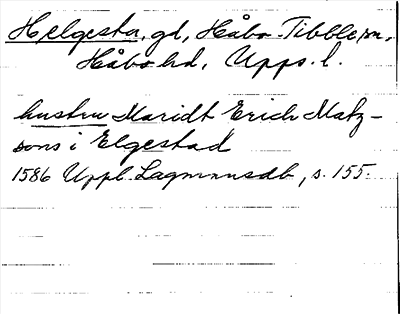 Helgesta, gd, Håbo-Tibble sn,
Håbo hd, Upps. l.
hustru Maridt Erich Matz-
sons i Elgestad
1586 Uppl. Lagmansdb, s. 155.